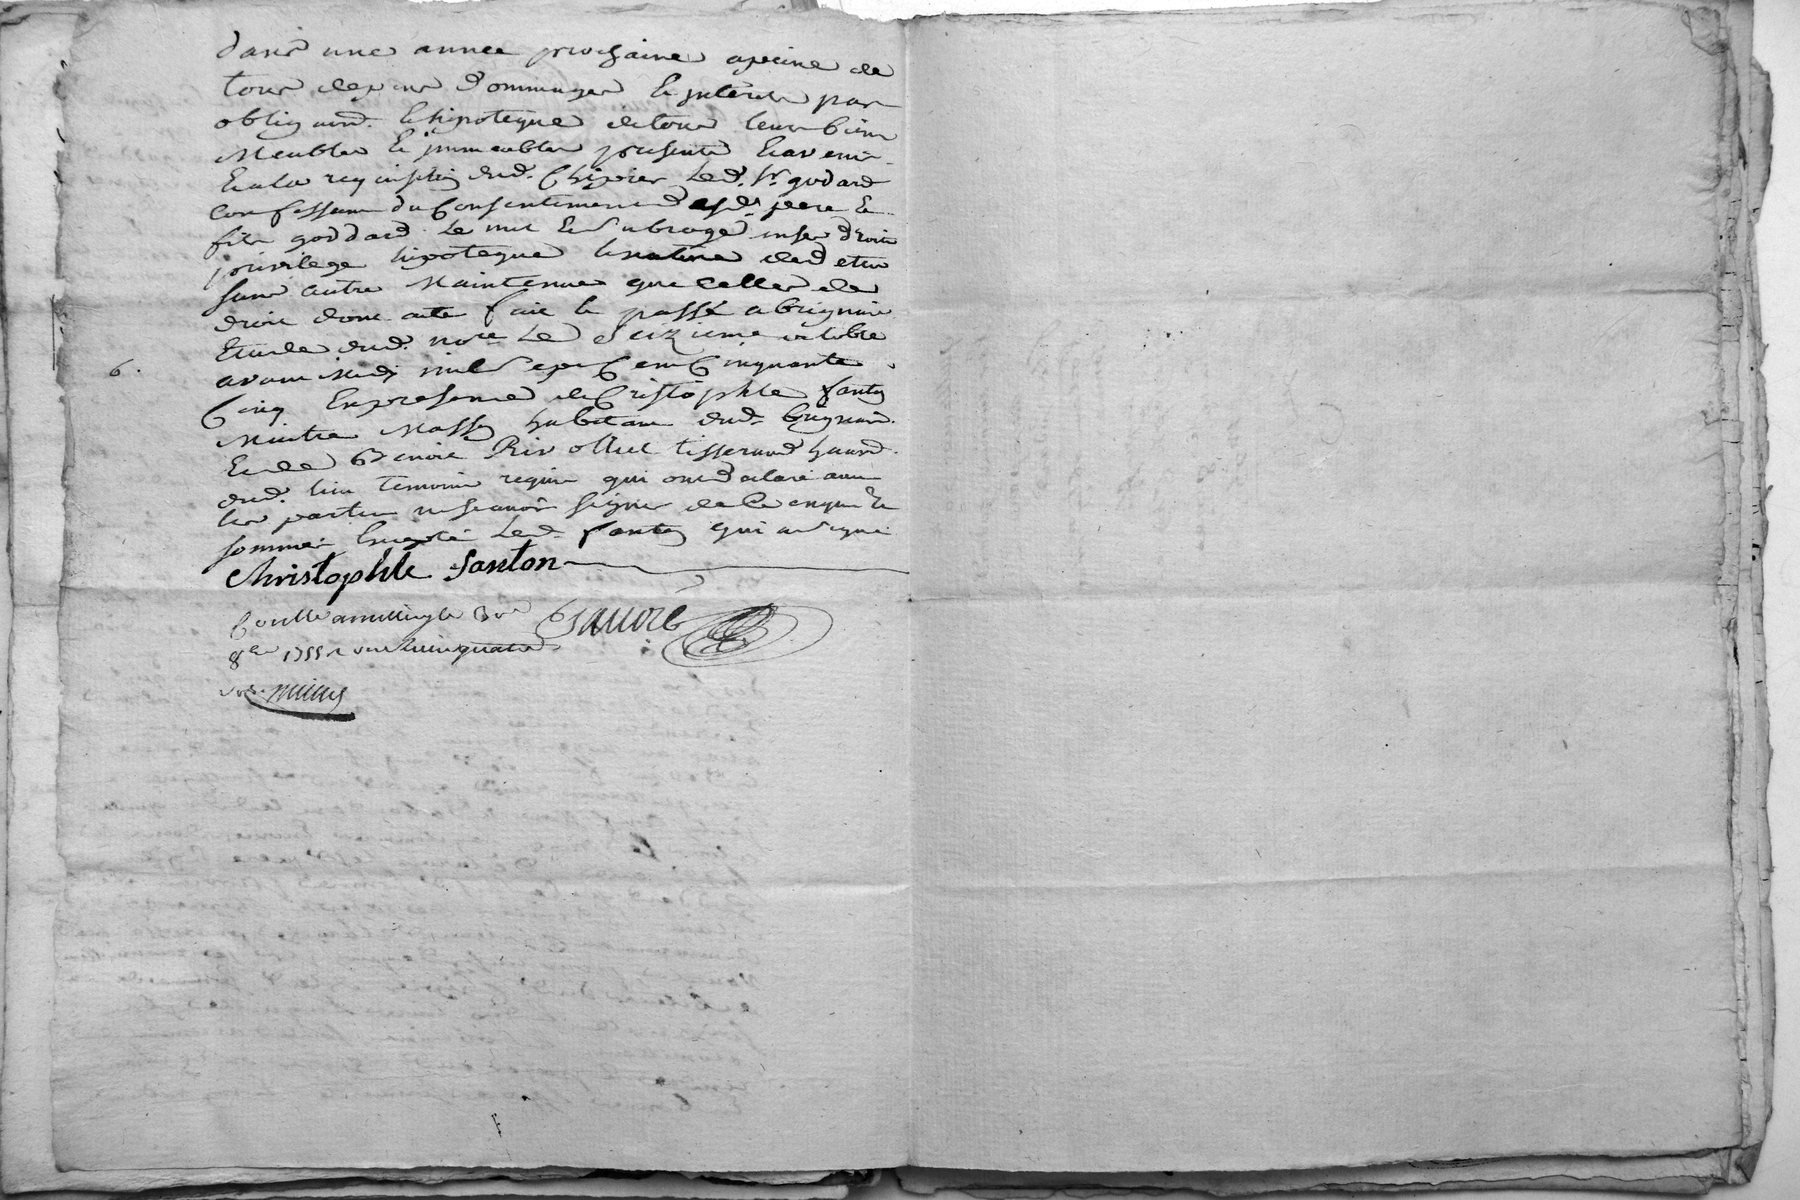 dans une annee prochaine apeine de
tous depens dommages & interets par
obligaõn. & hipoteque de tous leurs biens
Meubles & immeubles presents & avenir
& ala requisition dud. Chipier Led. Sr. godard
confessant du Consentement desd. pere &
fils goddard Le met & subroge en ses droits
privilege hipoteque & nature de dette
sans autre Maintenue que celles de
droit dont acte fait & passé a brignais
Etude dud. nore Le Seizieme octobre
6.
avant Midy mil sept Cent Cinquante
Cinq En presence de Cristophle fanton
Maitre Masson habitant dud. brignais
& de Benoit Rivollet tisserand habit.
dud. lieu temoins requis qui ont declaré avec
les parties ne scavoir signer de ce enquis &
sommés Excepté Led. fanton qui a signé
Christophle fanton
Controllé a millery le 30e
8bre 1755 r une livre quatre